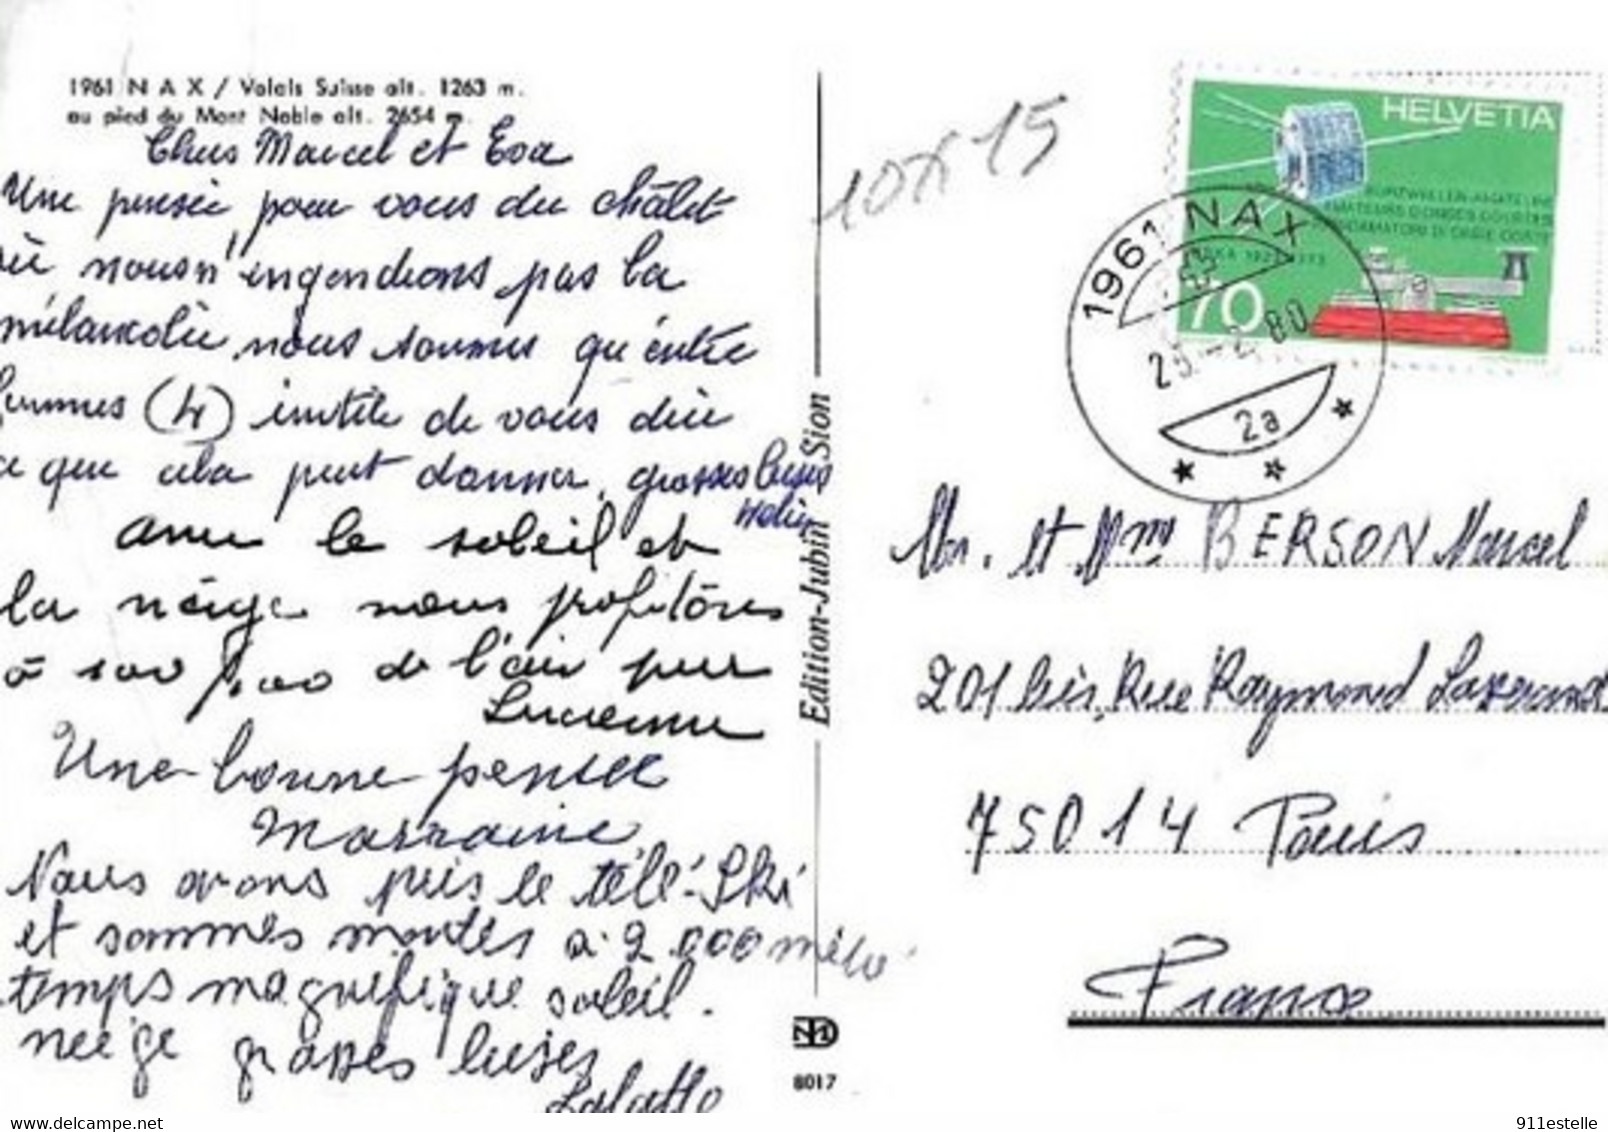 1961 N A X / Valais Suisse alt. 1263 m.
au pied du Mont Noble alt. 2654 m.
Chers Marcel et Eva
Une pensée pour vous du châlet
où nous n'engendrons pas la
mélancolie, nous sommes qu'entre
femmes (4) inutile de vous dire
ce que cela peut donner, grosses bises
avec le soleil et
la neige nous profitons
à 100 pour 100 de l'air pur
Lucienne
Une bonne pensée
Marraine
Nous avons pris le télé-Ski
et sommes montés à 2.000 mètre
temps magnifique soleil.
neige grosses bises
Edition-Jubin Sion
8017
10 x 15
HELVETIA
KURZWELLEN-AMATEURE
AMATEURS D'ONDES COURTES
RADIOAMATORI DI ONDE CORTE
70
1961 NAX
2.80
2a
Mr. et Mme BERSON Marcel
201 bis, Rue Raymond Losserand
75014 Paris
France
911estelle
delcampe.net